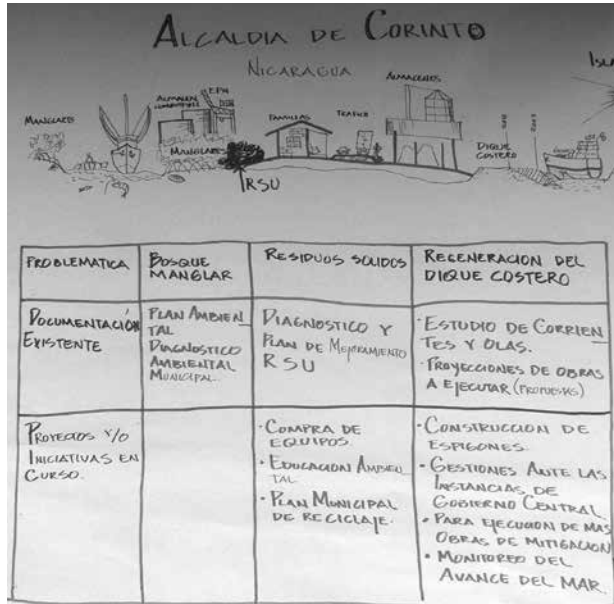 ALCALDIA DE CORINTO
NICARAGUA
ISLA
MANGLARES
ALMACEN
COMBUSTIBLE
EPN
MANGLARES
RSU
FAMILIAS
TRAFICO
ALMACENES
DIQUE
COSTERO
PROBLEMATICA
BOSQUE
MANGLAR
RESIDUOS SOLIDOS
REGENERACION DEL
DIQUE COSTERO
DOCUMENTACIÓN
EXISTENTE
PLAN AMBIEN
TAL
DIAGNOSTICO
AMBIENTAL
MUNICIPAL.
DIAGNOSTICO Y
PLAN DE MEJORAMIENTO
RSU
· ESTUDIO DE CORRIEN
TES Y OLAS.
· PROYECCIONES DE OBRAS
A EJECUTAR (PROPUESTAS)
PROYECTOS Y/O
INICIATIVAS EN
CURSO.
· COMPRA DE
EQUIPOS.
· EDUCACION AMBIEN
TAL
· PLAN MUNICIPAL
DE RECICLAJE.
· CONSTRUCCION DE
ESPIGONES.
· GESTIONES ANTE LAS
INSTANCIAS DE
GOBIERNO CENTRAL
· PARA EJECUCION DE MAS
OBRAS DE MITIGACION
· MONITOREO DEL
AVANCE DEL MAR.